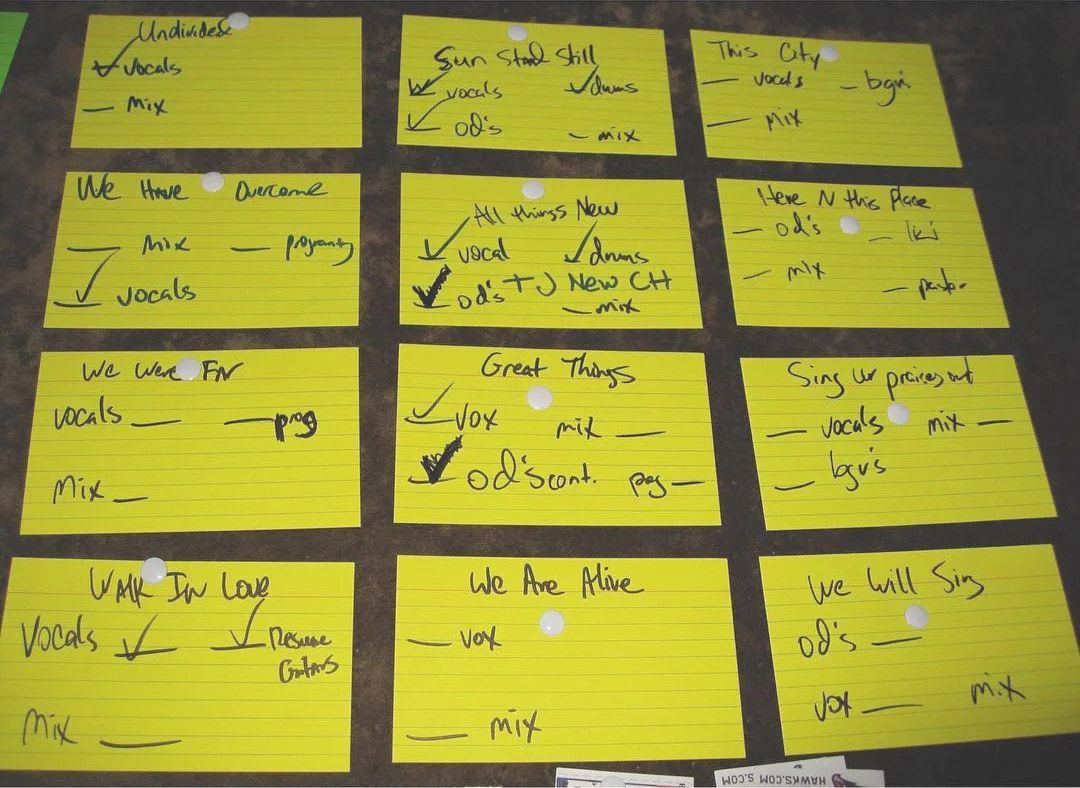 Undivided
vocals
Mix
Sun Stood Still
vocals drums
od's mix
This City
vocals bgv's
mix
We Have Overcome
Mix
vocals
All things New
vocal drums
od's TJ New CH
mix
Here N this Place
od's
mix
We Were Far
vocals prog
Mix
Great Things
Vox mix
od's cont.
Sing Ur praises out
vocals mix
bgv's
WAlk IN Love
Vocals Resume
Guitars
Mix
We Are Alive
vox
mix
We Will Sing
od's
vox mix
HAWKS.COM